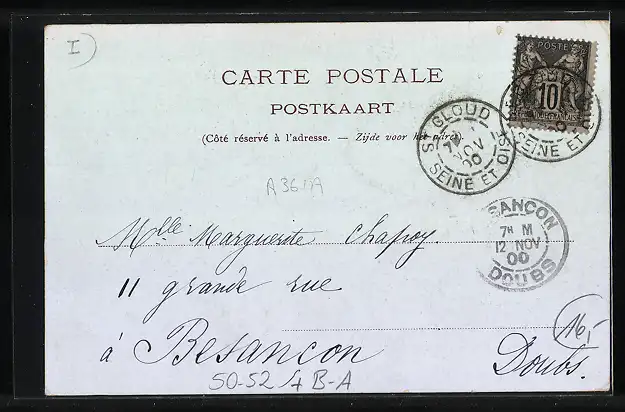 I
CARTE POSTALE
POSTKAART
(Côté réservé à l'adresse. — Zijde voor het adres).
POSTE
10
ST CLOUD
7
NOV
00
SEINE ET OISE
SEINE ET
A3617A
BESANCON
7H M
12 NOV
00
DOUBS
Mlle Marguerite Chapoy.
11 grande rue
à Besançon
Doubs.
16,-
50-52/4 B-A